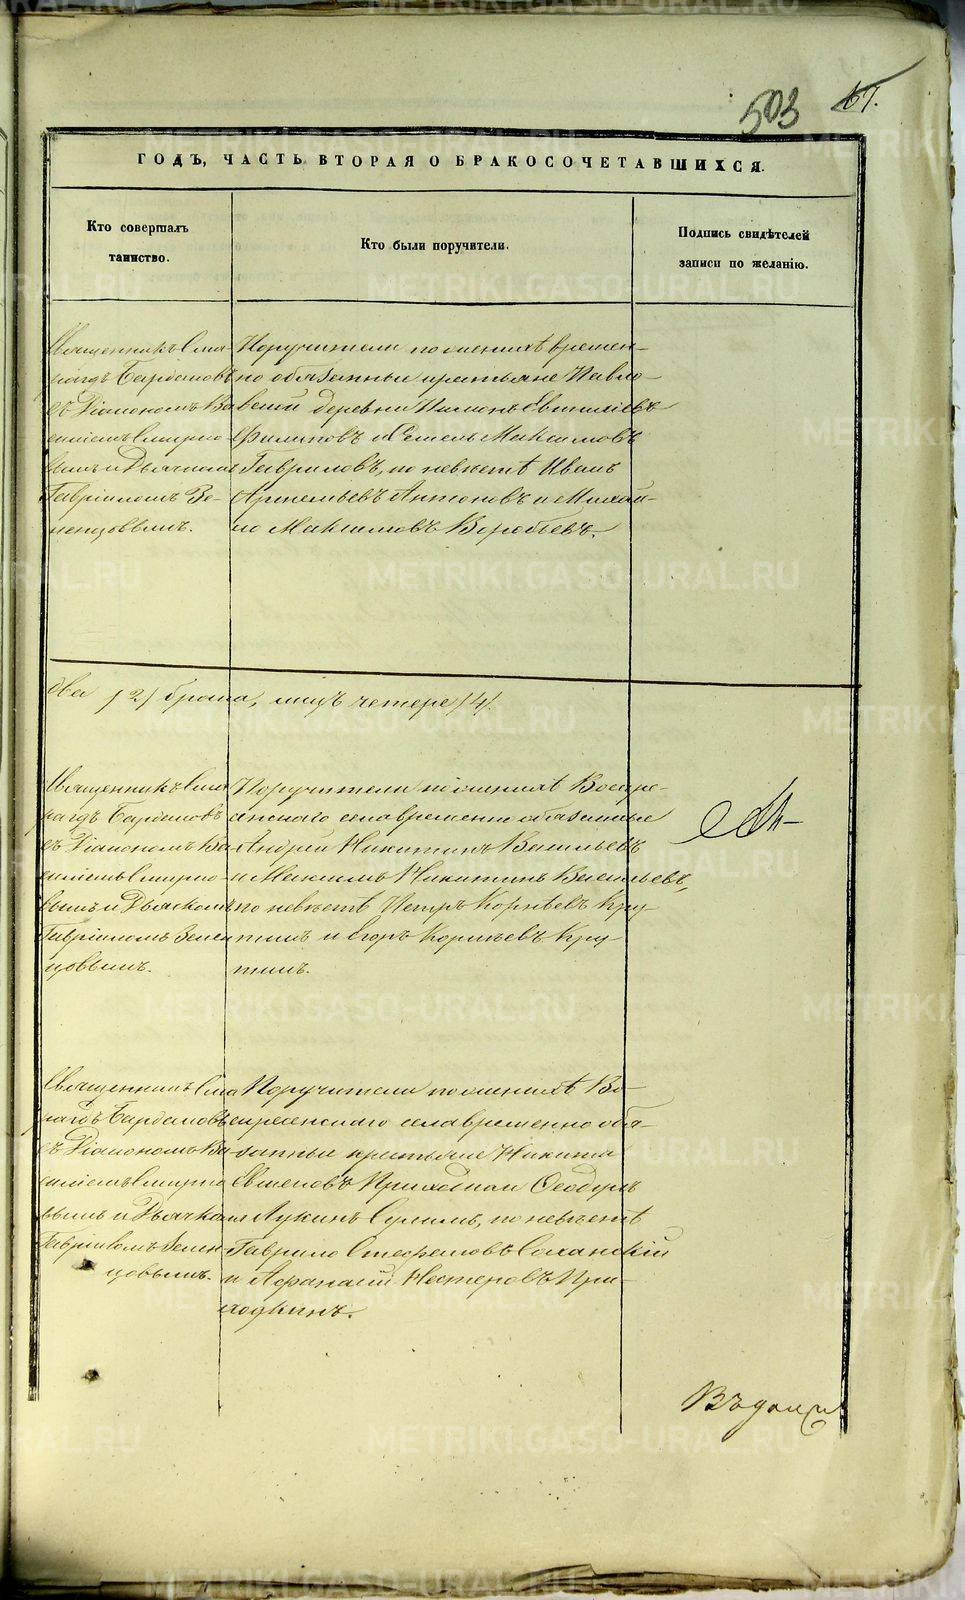 503
67.
ГОДЪ, ЧАСТЬ ВТОРАЯ О БРАКОСОЧЕТАВШИХСЯ.
Кто совершалъ
таинство.
Кто были поручители.
Подпись свидѣтелей
записи по желанію.
Священникъ Сма-
рагдъ Бардамовъ
съ Діакономъ Ва
силіемъ Смирно
вымъ и Дьячкомъ
Гавріиломъ Зе-
ленцовымъ.
Поручители по женихѣ времен-
но обязанные крестьяне Павло-
вской деревни
Филиповъ и Семенъ Максимовъ
Гавриловъ, по невѣстѣ Иванъ
Артемьевъ Антоновъ и Михаи-
ло Максимовъ Воробьевъ.
два /2/ брака, лицъ четере /4/.
Священникъ Сма
рагдъ Бардамовъ
съ Діакономъ Ва
силіемъ Смирно
вымъ и Дьячкомъ
Гавріиломъ Зелен
цовымъ.
Поручители по женихѣ Воскре-
сенскаго села временно обязанные
Андрей Никитинъ Васильевъ
и Максимъ Никитинъ Васильевъ,
по невѣстѣ Петръ Корнѣевъ Кру-
тинъ и Егоръ Корнѣевъ Кру-
тинъ.
Священникъ Сма
рагдъ Бардамовъ
съ Діакономъ Ва
силіемъ Смирно
вымъ и Дьячкомъ
Гавріиломъ Зелен
цовымъ.
Поручители по женихѣ Во-
скресенскаго села временно обя-
занные крестьяне Никита
Ѳеодоръ
Лукинъ по невѣстѣ
Гаврило Стефановъ
и Афанасій Нестеровъ При-
ходкинъ.
METRIKI.GASO-URAL.RU